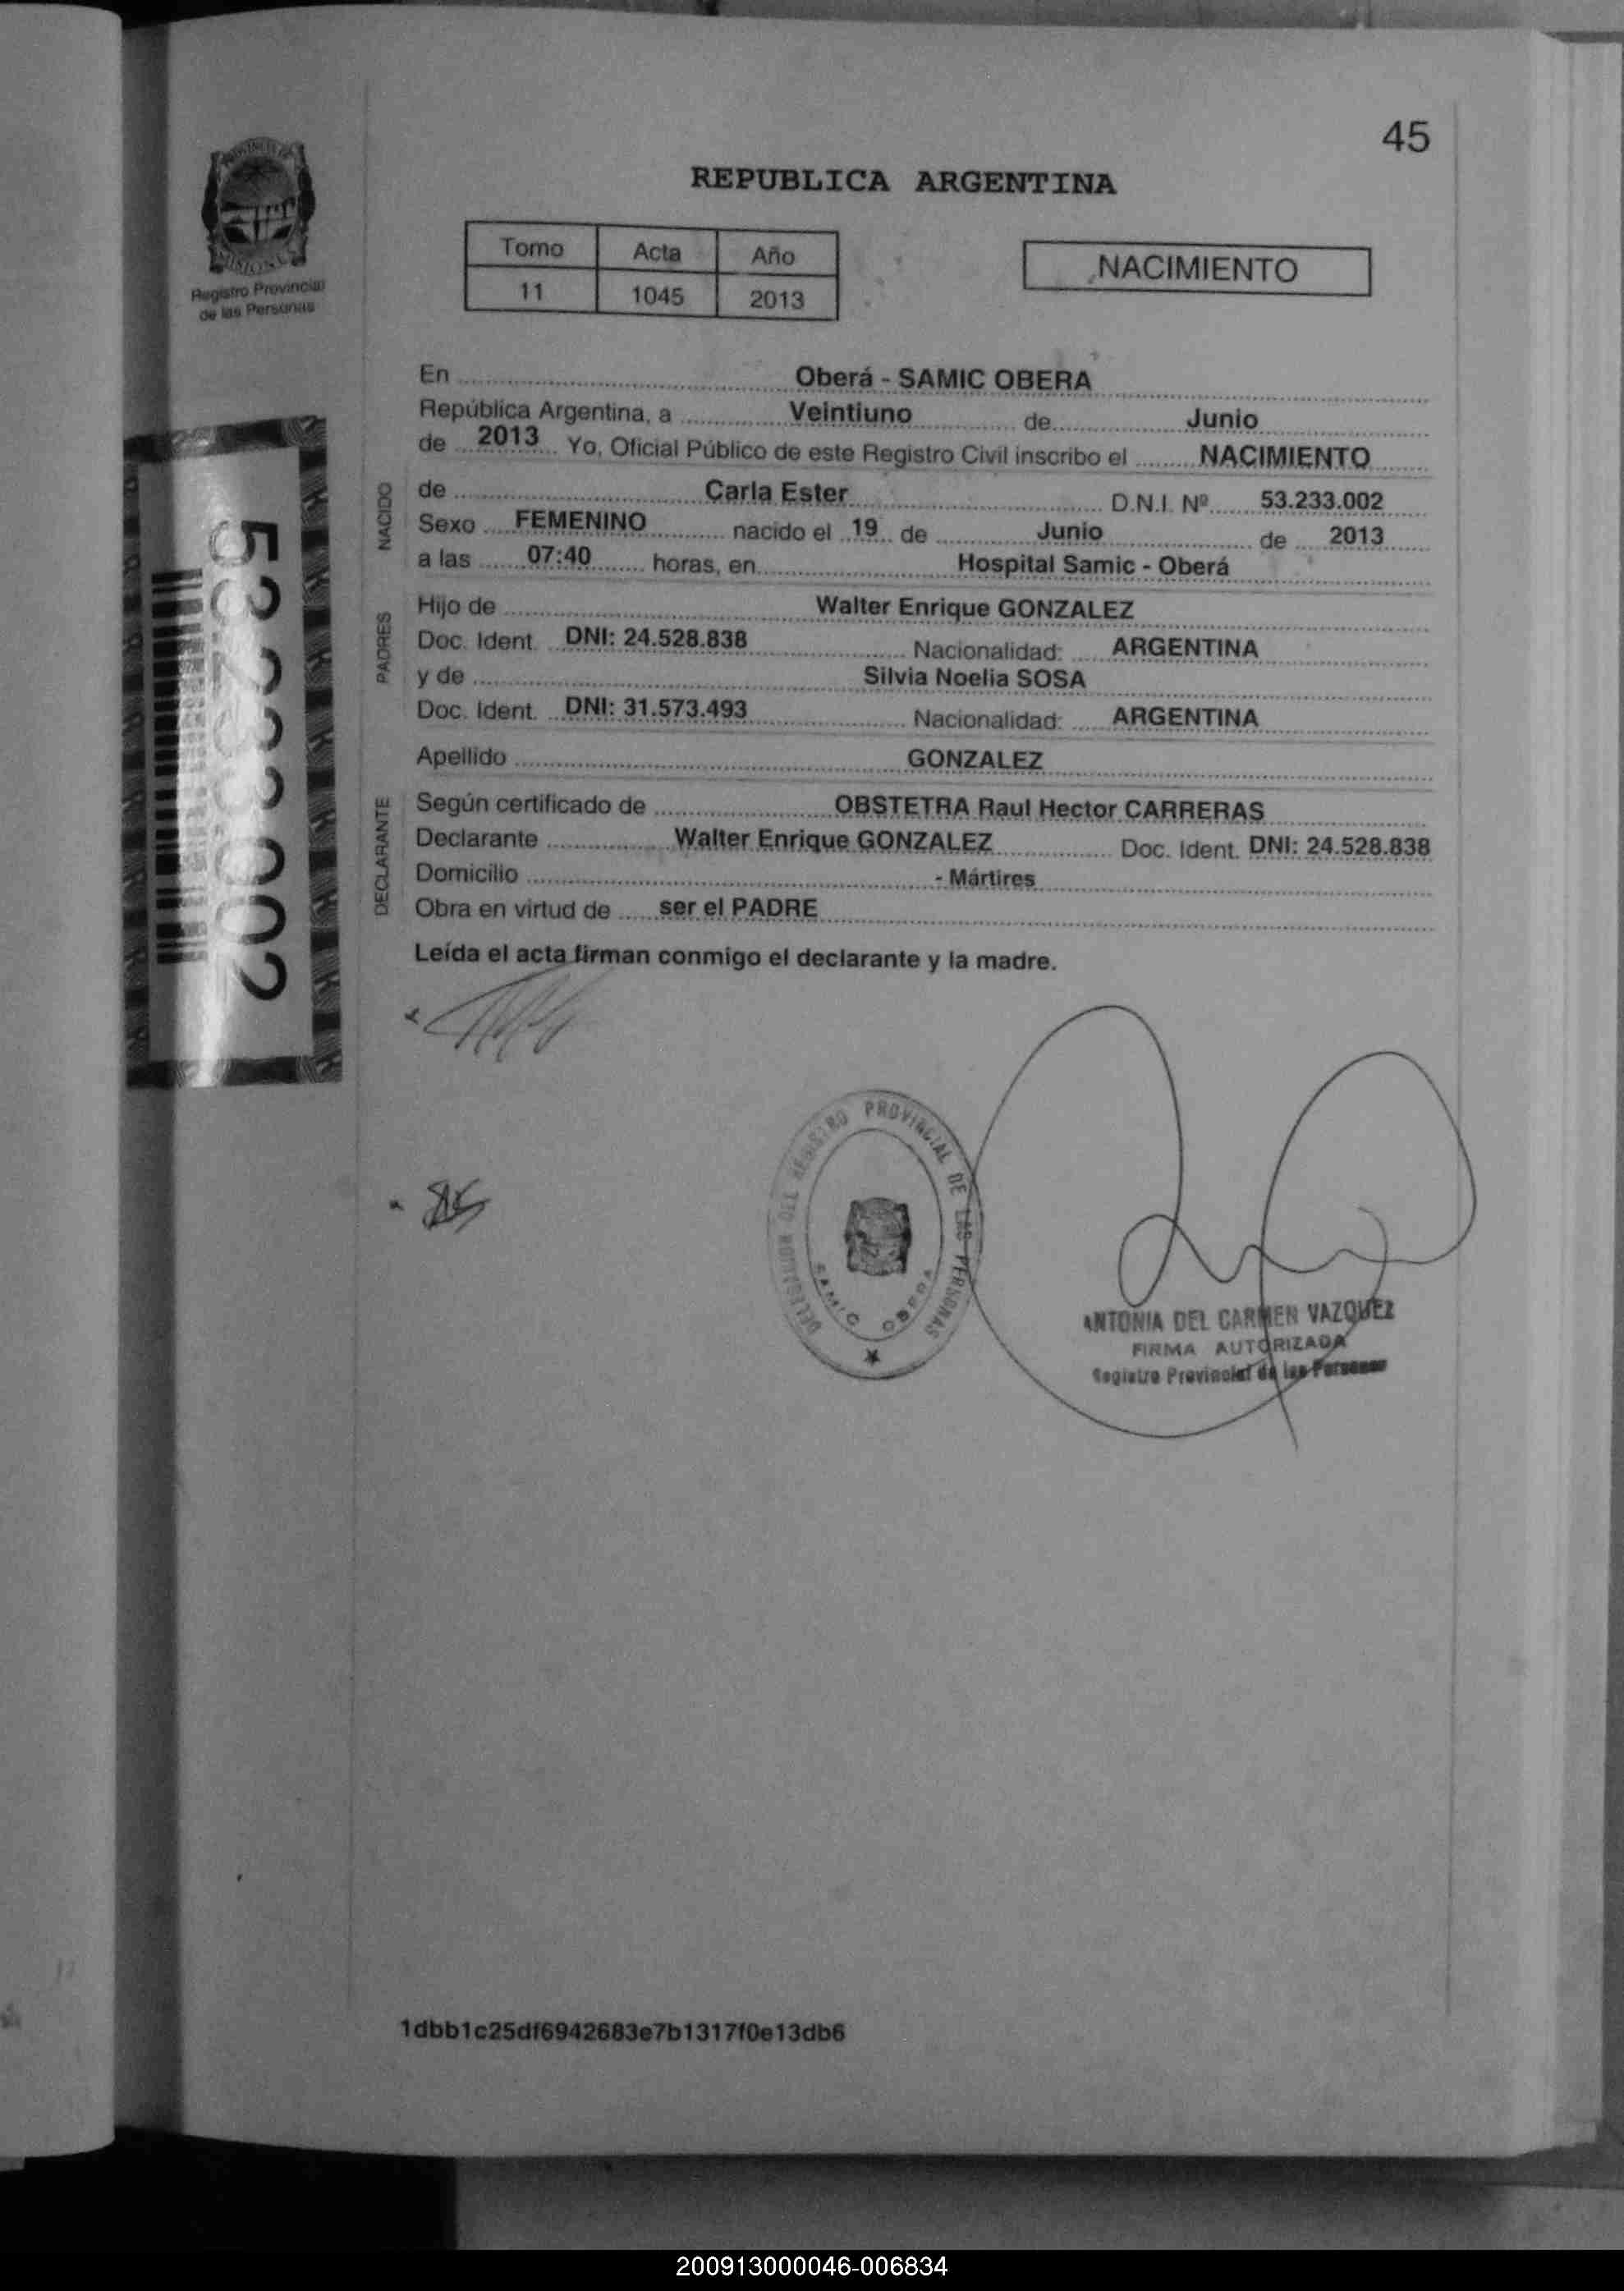 45
REPUBLICA ARGENTINA
PROVINCIA DE
MISIONES
Registro Provincial
de las Personas
Tomo Acta Año
11 1045 2013
NACIMIENTO
En Oberá - SAMIC OBERA
República Argentina, a Veintiuno de Junio
de 2013 Yo, Oficial Público de este Registro Civil inscribo el NACIMIENTO
NACIDO
de Carla Ester D.N.I. Nº 53.233.002
Sexo FEMENINO nacido el 19 de Junio de 2013
a las 07:40 horas, en Hospital Samic - Oberá
PADRES
Hijo de Walter Enrique GONZALEZ
Doc. Ident. DNI: 24.528.838 Nacionalidad: ARGENTINA
y de Silvia Noelia SOSA
Doc. Ident. DNI: 31.573.493 Nacionalidad: ARGENTINA
Apellido GONZALEZ
DECLARANTE
Según certificado de OBSTETRA Raul Hector CARRERAS
Declarante Walter Enrique GONZALEZ Doc. Ident. DNI: 24.528.838
Domicilio - Mártires
Obra en virtud de ser el PADRE
Leída el acta firman conmigo el declarante y la madre.
53233002
DELEGACION DEL REGISTRO PROVINCIAL DE LAS PERSONAS
SAMIC OBERA
ANTONIA DEL CARMEN VAZQUEZ
FIRMA AUTORIZADA
Registro Provincial de las Personas
1dbb1c25df6942683e7b1317f0e13db6
200913000046-006834